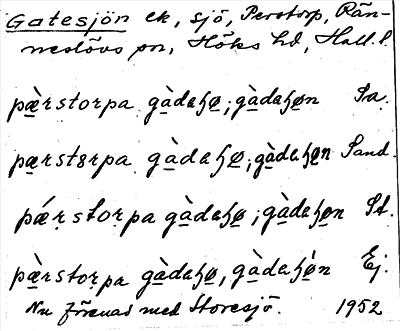 Gatesjön ek, sjö, Perstorp, Rän-
neslövs sn, Höks hd, Hall. l.
pæ̀rstorpa gàdaɧø; gàdaɧøn Sa.
pærstɜrpa gàdaɧø; gàdaɧøn Sand.
pǽrstorpa gàdaɧø; gàdaɧøn St.
pæ̀rstorpa gàdaɧø, gàdaɧøn Ej.
Nu förenad med Storesjö. 1952